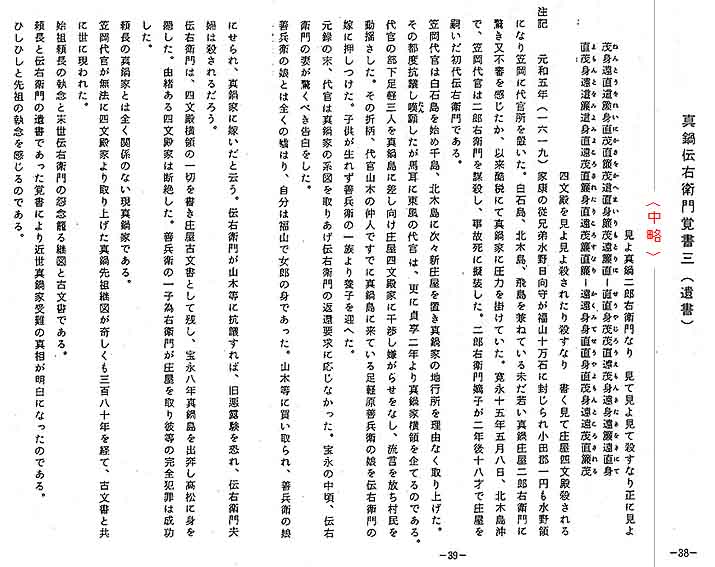 真鍋伝右衛門覚書三(遺書)
〈中略〉
見よ真鍋二郎右衛門なり 見て見よ見て殺すなり正に見よ
四文殿を見よ見よ殺されたり殺すなり 書く見て庄屋四文殿殺される
注記 元和五年(一六一九)家康の従兄弟水野日向守が福山十万石に封じられ小田郡一円も水野領
になり笠岡に代官所を置いた。白石島、北木島、飛島を兼ねている未だ若い真鍋庄屋二郎右衛門に
驚き又不審を感じたか、以来酷税にて真鍋家に圧力を掛けていた。寛永十五年五月八日、北木島沖
で、笠岡代官は二郎右衛門を謀殺し、事故死に擬装した。二郎右衛門嫡子が二年後十八才で庄屋を
嗣いだ初代伝右衛門である。
笠岡代官は白石島を始め千島、北木島に次々新庄屋を置き真鍋家の地行所を理由なく取り上げた。
その都度抗議し嘆願したが馬耳に東風の代官は、更に貞享二年より真鍋家横領を企てるのである。
代官の部下足軽三人を真鍋島に差し向け庄屋四文殿家に干渉し嫌がらせをなし、流言を放ち村民を
動揺さした。その折柄、代官山木の仲人ですでに真鍋島に来ている足軽原善兵衛の娘を伝右衛門の
嫁に押しつけた。子供が生れず善兵衛の一族より養子を迎へた。
元録の末、代官は真鍋家の系図を取りあげ伝右衛門の返還要求に応じなかった。宝永の中頃、伝右
衛門の妻が驚くべき告白をした。
善兵衛の娘とは全くの嘘はり、自分は福山で女郎の身であった。山木等に買い取られ、善兵衛の娘
にせられ、真鍋家に嫁いだと云う。伝右衛門が山木等に抗議すれば、旧悪露験を恐れ、伝右衛門夫
婦は殺されるだろう。
伝右衛門は、四文殿横領の一切を書き庄屋古文書として残し、宝永八年真鍋島を出奔し高松に身を
隠した。由緒ある四文殿家は断絶した。善兵衛の一子為右衛門が庄屋を取り彼等の完全犯罪は成功
した。
頼長の真鍋家とは全く関係のない現真鍋家である。
笠岡代官が無法に四文殿家より取り上げた真鍋先祖継図が奇しくも三百八十年を経て、古文書と共
に世に現われた。
始祖頼長の執念と末世伝右衛門の怨念籠る継図と古文書である。
頼長と伝右衛門の遺書であった覚書により近世真鍋家受難の真相が明白になったのである。
ひしひしと先祖の執念を感じるのである。
-38-
-39-